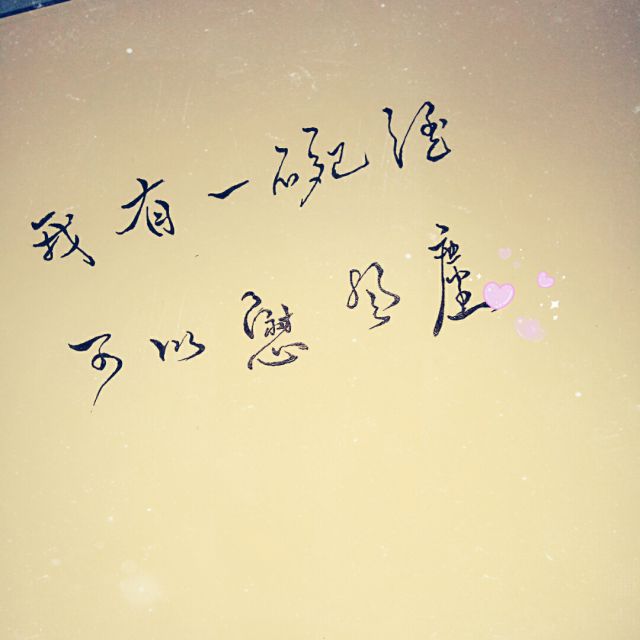 我有一碗酒
可以慰风塵